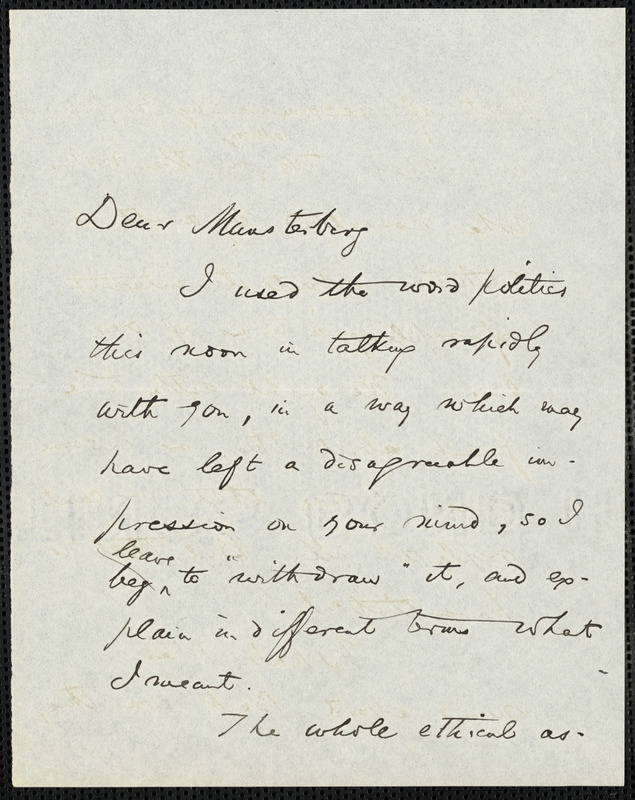 Dear Munsterberg
I used the word politics
this noon in talking rapidly
with you, in a way which may
have left a disagreeable im-
pression on your mind, so I
leave
beg ‸ to "withdraw" it, and ex-
plain in different terms what
I meant.
The whole ethical as-